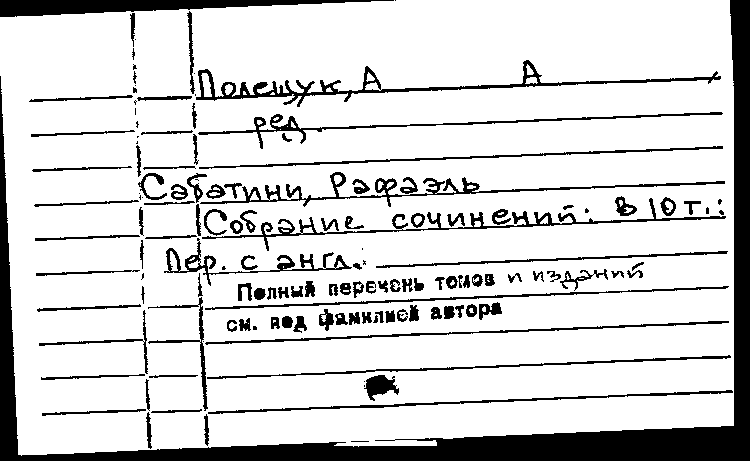 Полещук, А А
ред.
Сабатини, Рафаэль
Собрание сочинений: В 10 т.:
Пер. с англ.
Полный перечень томов и изданий
см. под фамилией автора